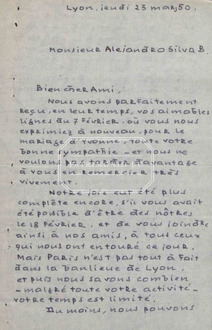 Lyon, jeudi 23 mars 50.
Monsieur Alejandro Silva B
Bien cher Ami,
Nous avons parfaitement
reçu, en leur temps, vos aimables
lignes du 7 Février, où vous nous
exprimiez à nouveau, pour le
mariage d'Yvonne, toute votre
bonne sympathie - et nous ne
voulons pas tarder davantage
à vous en remercier très
vivement.
Notre joie eut été plus
complète encore, s'il vous avait
été possible d'être des nôtres
le 18 Février, et de vous joindre
ainsi à nos amis, à tous ceux
qui nous ont entouré ce jour.
Mais Paris n'est pas tout à fait
dans la banlieue de Lyon -
et puis nous savons combien
- malgré toute votre activité -
votre temps est limité.
Du moins, nous pouvons